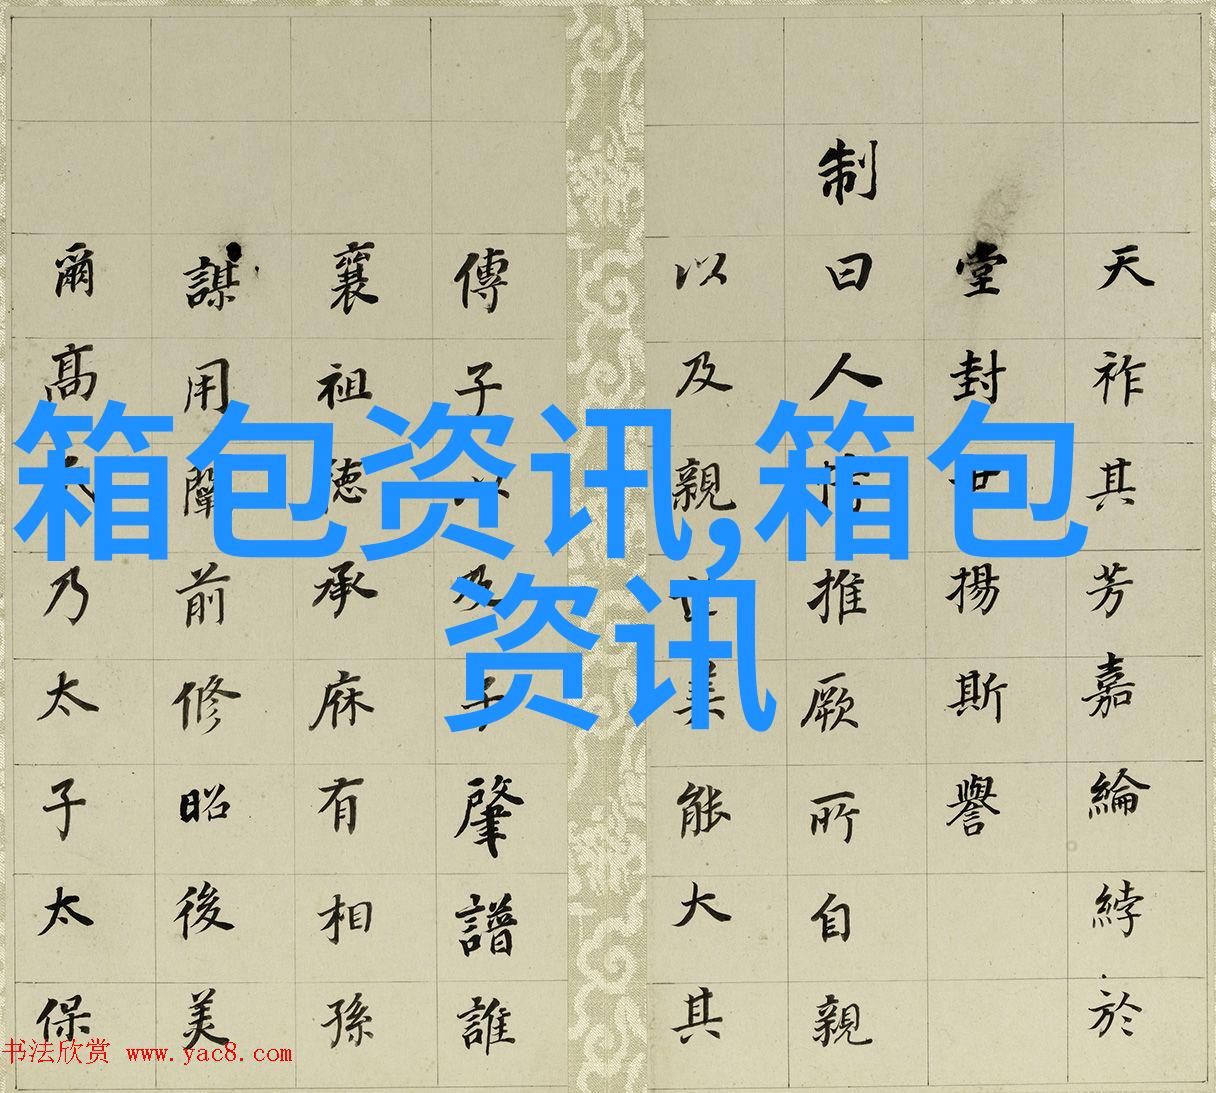 天祚其芳嘉綸綍於
堂封世揚斯譽
制
曰人情推厥所自親
以及親世美能大其
傳子以及子肇譜誰
襄祖德承庥有相孫
謀用闡前修昭後美
爾高乃太子太保
箱包资讯,箱包
资讯
书法欣赏 www.yac8.com